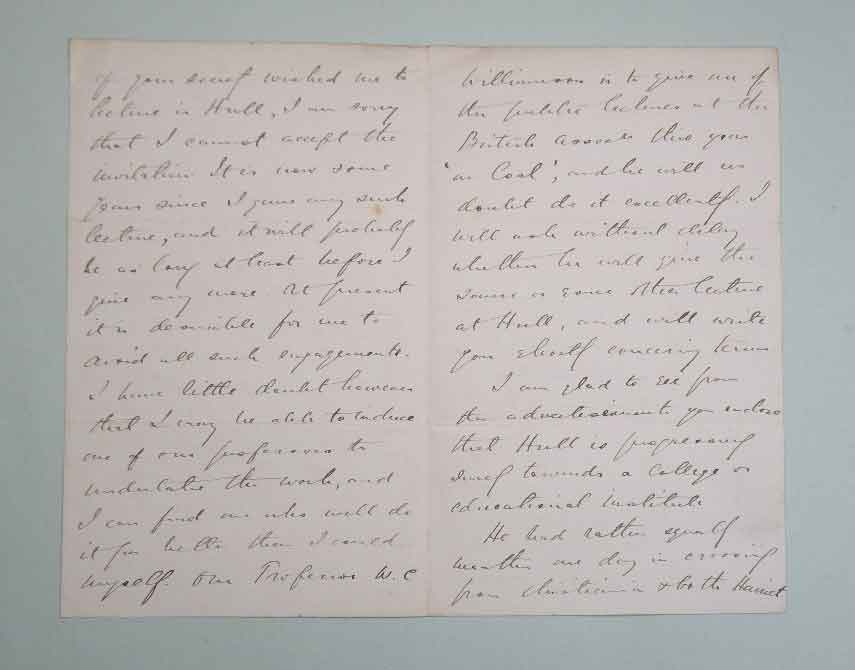 if your socy wished me to
lecture in Hull, I am sorry
that I cannot accept the
invitation It is now some
years since I gave any such
lecture, and it will probably
be as long at least before I
give any more. At present
it is desirable for me to
avoid all such engagements.
I have little doubt however
that I may be able to induce
one of our professors to
undertake the work, and
I can find one who will do
it far better than I could
myself. Our Professor W. C
Williamson is to give one of
the public lectures at the
British Assocn this year
'on Coal', and he will no
doubt do it excellently. I
will ask without delay
whether he will give the
same or some other lecture
at Hull, and will write
you shortly concerning terms
I am glad to see from
the advertisements you enclose
that Hull is progressing
towards a College or
educational institute
We had rather squally
weather one day in crossing
from Christiania & both Harriet